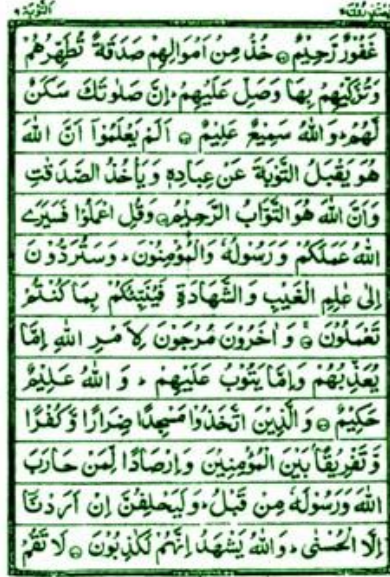 التوبة ٩
يعتذرون ١١
غَفُوْرٌ رَّحِيْمٌ ۝ خُذْ مِنْ اَمْوَالِهِمْ صَدَقَةً تُطَهِّرُهُمْ
وَتُزَكِّيْهِمْ بِهَا وَصَلِّ عَلَيْهِمْ ؕ اِنَّ صَلٰوتَكَ سَكَنٌ
لَّهُمْ ؕ وَاللّٰهُ سَمِيْعٌ عَلِيْمٌ ۝ اَلَمْ يَعْلَمُوْۤا اَنَّ اللّٰهَ
هُوَ يَقْبَلُ التَّوْبَةَ عَنْ عِبَادِهٖ وَيَاْخُذُ الصَّدَقٰتِ
وَاَنَّ اللّٰهَ هُوَ التَّوَّابُ الرَّحِيْمُ ۝ وَقُلِ اعْمَلُوْا فَسَيَرَى
اللّٰهُ عَمَلَكُمْ وَرَسُوْلُهٗ وَالْمُؤْمِنُوْنَ ؕ وَسَتُرَدُّوْنَ
اِلٰى عٰلِمِ الْغَيْبِ وَالشَّهَادَةِ فَيُنَبِّئُكُمْ بِمَا كُنْتُمْ
تَعْمَلُوْنَ ۝ وَاٰخَرُوْنَ مُرْجَوْنَ لِاَمْرِ اللّٰهِ اِمَّا
يُعَذِّبُهُمْ وَاِمَّا يَتُوْبُ عَلَيْهِمْ ؕ وَاللّٰهُ عَلِيْمٌ
حَكِيْمٌ ۝ وَالَّذِيْنَ اتَّخَذُوْا مَسْجِدًا ضِرَارًا وَّكُفْرًا
وَّتَفْرِيْقًاۢ بَيْنَ الْمُؤْمِنِيْنَ وَاِرْصَادًا لِّمَنْ حَارَبَ
اللّٰهَ وَرَسُوْلَهٗ مِنْ قَبْلُ ؕ وَلَيَحْلِفُنَّ اِنْ اَرَدْنَاۤ
اِلَّا الْحُسْنٰى ؕ وَاللّٰهُ يَشْهَدُ اِنَّهُمْ لَكٰذِبُوْنَ ۝ لَا تَقُمْ